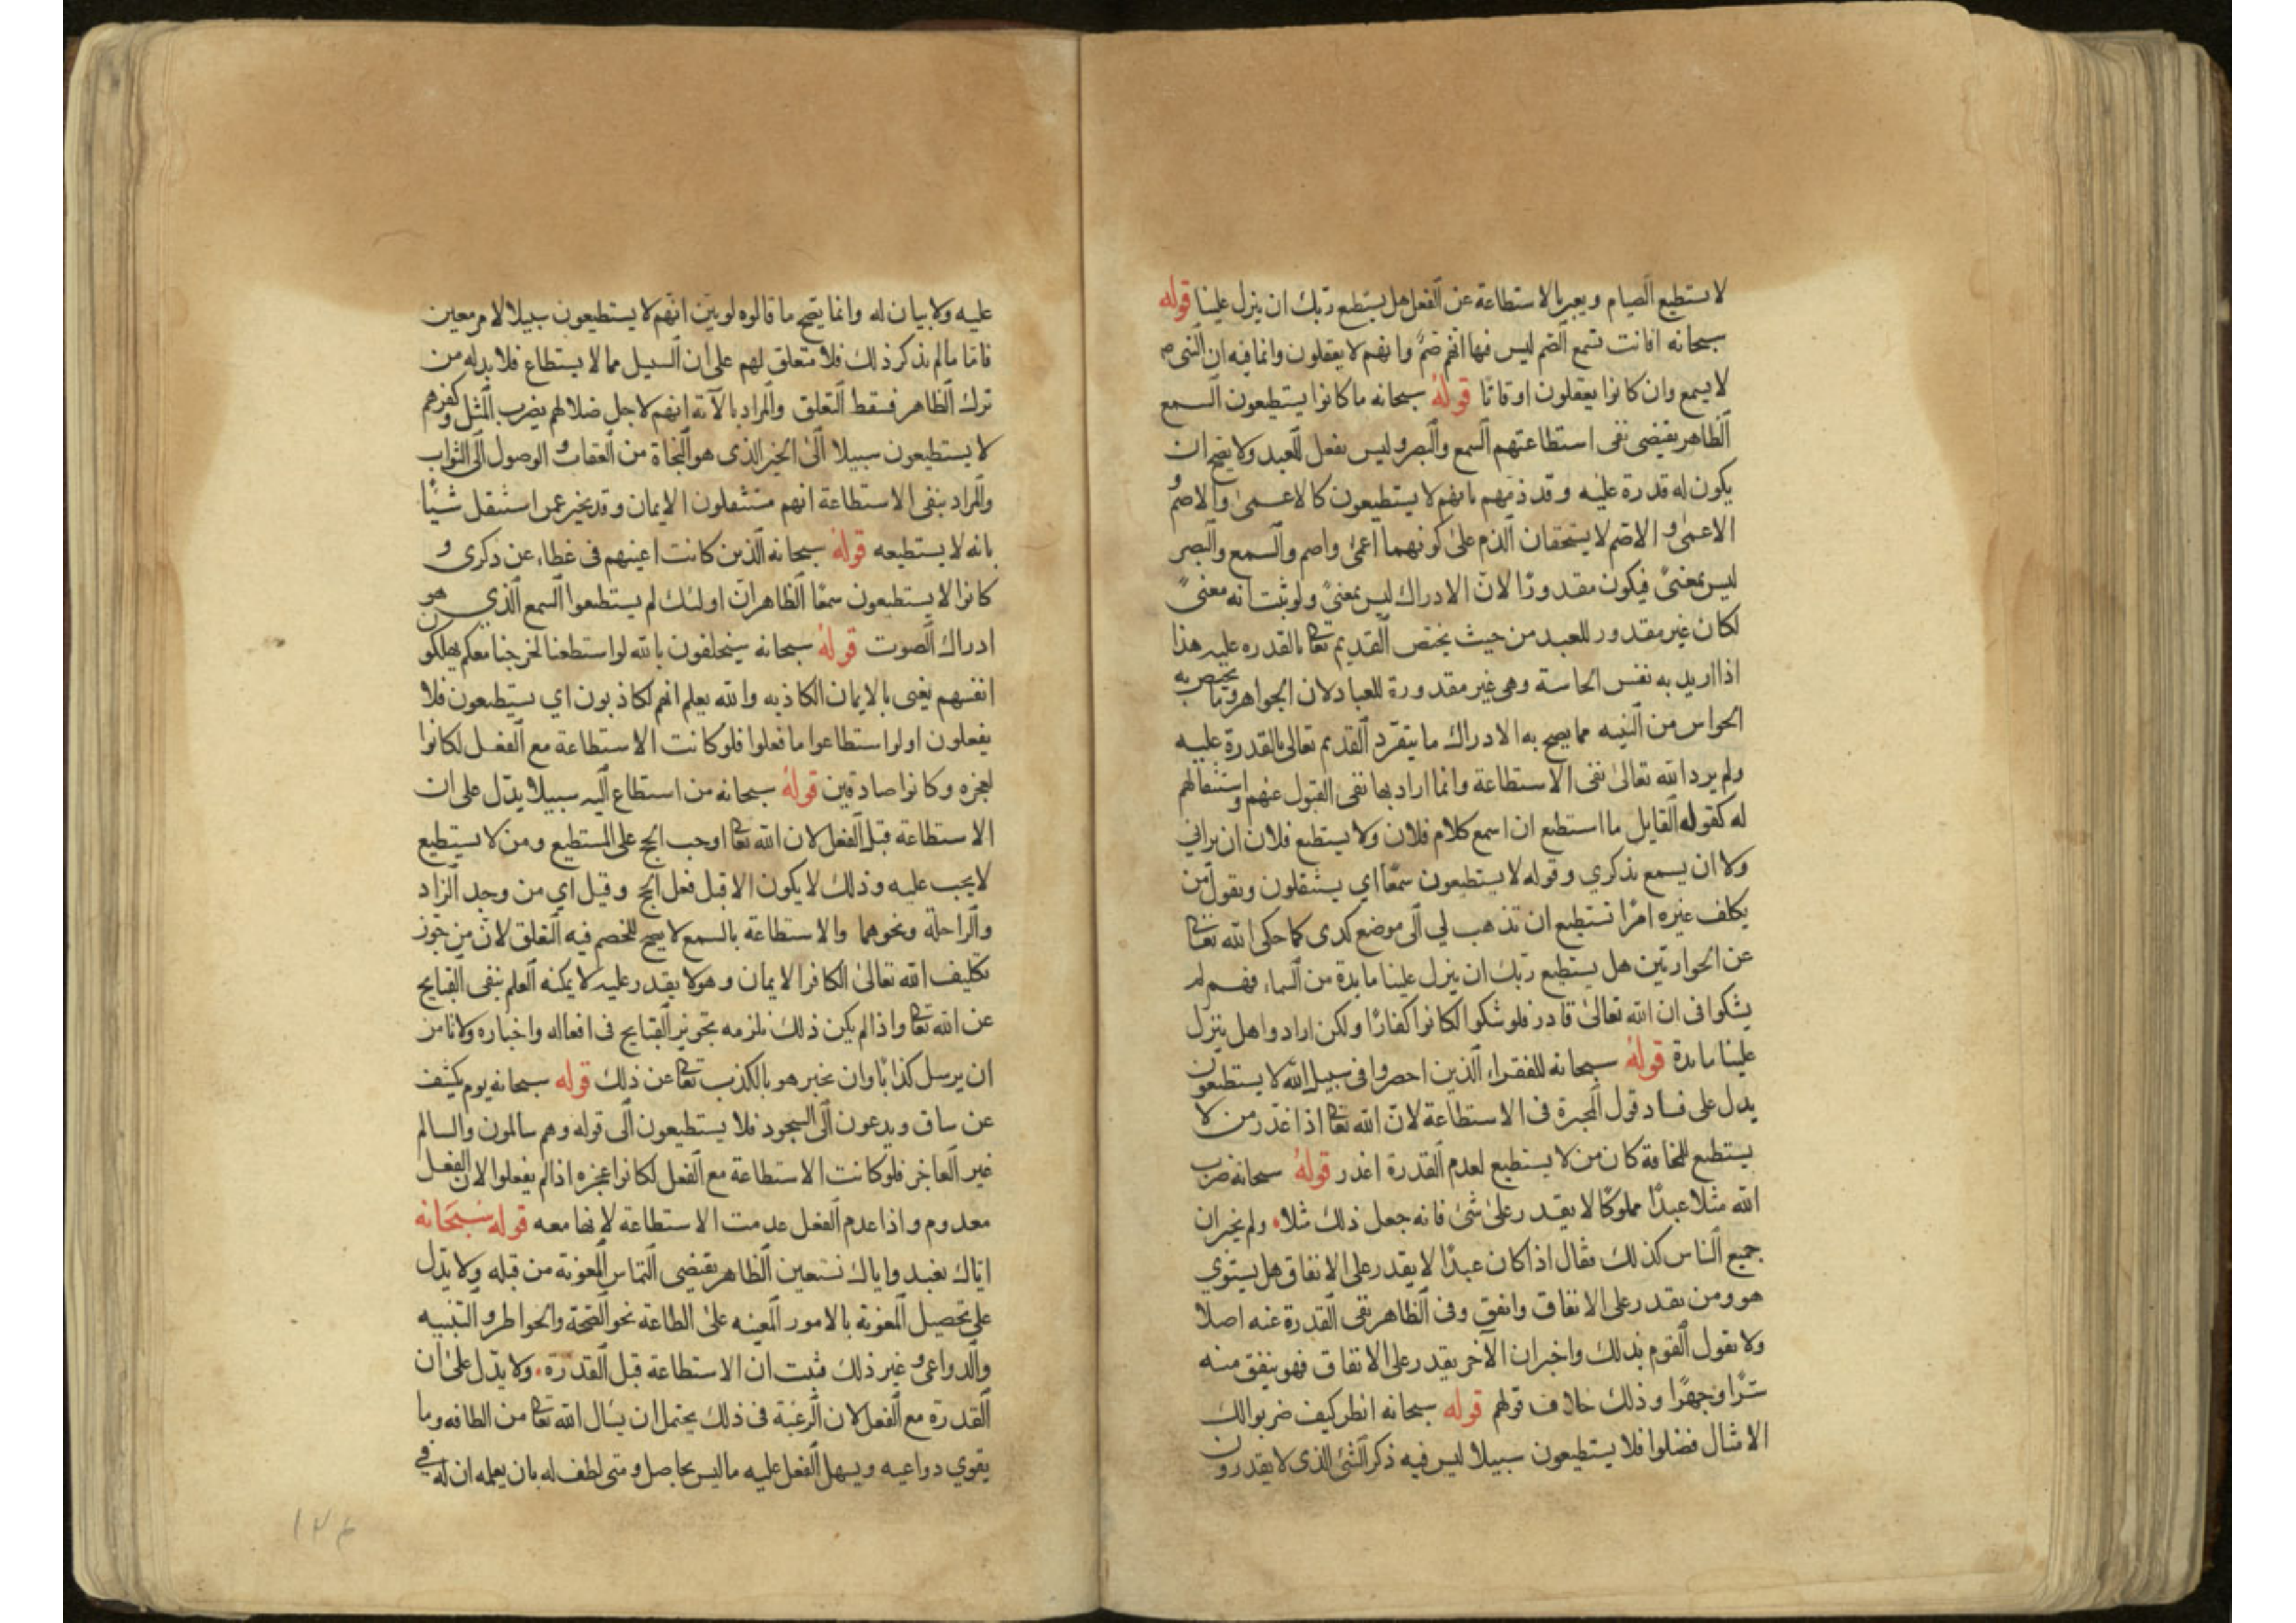 لا يستطيع الصيام ويعبر بالاستطاعة عن الفعل هل يستطيع ربك ان ينزل علينا قوله
سبحانه افانت تسمع الصم ليس فيها انهم صم وانهم لا يعقلون وانما فيه ان النبى ص
لا يسمع وان كانوا يعقلون اوقاتا قوله سبحانه ما كانوا يستطيعون السمع
الظاهر يقتضى نفى استطاعتهم السمع والبصر وليس بفعل للعبد ولا يصح ان
يكون له قدرة عليه وقد ذمهم بانهم لا يستطيعون كالاعمى والاصم و
الاعمى والاصم لا يستحقان الذم على كونهما اعمى واصم والسمع والبصر
ليس بمعنىً فيكون مقدورًا لان الادراك ليس بمعنىً ولو ثبت انه معنىً
لكان غير مقدور للعبد من حيث يختص القديم تعا بالقدره عليه هذا
اذا اريد به نفس الحاسة وهى غير مقدورة للعباد لان الجواهر وما يختص به
الحواس من البنيه مما يصح به الادراك ما يتفرد القديم تعالى بالقدرة عليه
ولم يرد الله تعالى نفى الاستطاعة وانما اراد بها نفى القبول عنهم واستثقالهم
له كقوله القايل ما استطيع ان اسمع كلام فلان ولا يستطيع فلان ان يرانى
ولا ان يسمع بذكري وقوله لا يستطيعون سمعًا اي يستثقلون ويقول من
يكلف غيره امرًا تستطيع ان تذهب لي الى موضع كدى كما حكى الله تعا
عن الحواريين هل يستطيع ربك ان ينزل علينا مايدة من السماء فهم لم
يشكوا فى ان الله تعالى قادر فلو شكوا لكانوا كفارًا ولكن ارادوا هل ينزل
علينا مايدة قوله سبحانه للفقراء الذين احصروا فى سبيل الله لا يستطيعون
يدل على فساد قول المجبرة فى الاستطاعة لان الله تعا اذا عذر من لا
يستطيع للمخافة كان من لا يستطيع لعدم القدرة اعذر قوله سبحانه ضرب
الله مثلا عبدًا مملوكًا لا يقدر على شئ فانه جعل ذلك مثلا ولم يخبر ان
جميع الناس كذلك فقال اذا كان عبدًا لا يقدر على الانفاق هل يستوي
هو ومن يقدر على الانفاق وانفق وفى الظاهر نفى القدرة عنه اصلا
ولا يقول القوم بذلك واخبر ان الآخر يقدر على الانفاق فهو ينفق منه
سرًا وجهرًا وذلك خلاف قولهم قوله سبحانه انظر كيف ضربوا لك
الامثال فضلوا فلا يستطيعون سبيلا ليس فيه ذكر الشئ الذى لا يقدرون
عليه ولا بيان له وانما يصح ما قالوه لو بين انهم لا يستطيعون سبيلا لامر معين
فاما ما لم يذكر ذلك فلا متعلق لهم على ان السبيل مما لا يستطاع فلا بد له من
ترك الظاهر فسقط التعلق والمراد بالآية انهم لاجل ضلالهم بضرب المثل وكفرهم
لا يستطيعون سبيلا الى الخير الذى هو النجاة من العقاب والوصول الى الثواب
والمراد بنفى الاستطاعة انهم مستثقلون الايمان وقد يخبر عمن استثقل شيئًا
بانه لا يستطيعه قوله سبحانه الذين كانت اعينهم فى غطاء عن ذكرى و
كانوا لا يستطيعون سمعًا الظاهر ان اولئك لم يستطيعوا السمع الذي هو
ادراك الصوت قوله سبحانه سيحلفون بالله لو استطعنا لخرجنا معكم يهلكون
انفسهم يعنى بالايمان الكاذبه والله يعلم انهم لكاذبون اي يستطيعون فلا
يفعلون اولو استطاعوا ما فعلوا فلو كانت الاستطاعة مع الفعل لكانوا
لعجزه وكانوا صادقين قوله سبحانه من استطاع اليه سبيلا يدل على ان
الاستطاعة قبل الفعل لان الله تعا اوجب الحج على المستطيع ومن لا يستطيع
لا يجب عليه وذلك لا يكون الا قبل فعل الحج وقيل اي من وجد الزاد
والراحلة ونحوهما والاستطاعة بالسمع لا يصح للخصم فيه التعلق لان من جوز
تكليف الله تعالى الكافر الايمان وهو لا يقدر عليه لا يمكنه العلم بنفى القبايح
عن الله تعا واذا لم يكن ذلك نلزمه بتجويز القبايح فى افعاله واخباره ولا نامن
ان يرسل كذابًا وان يخبر هو بالكذب تعا عن ذلك قوله سبحانه يوم يكشف
عن ساق ويدعون الى السجود فلا يستطيعون الى قوله وهم سالمون والسالم
غير العاجز فلو كانت الاستطاعة مع الفعل لكانوا عجزه اذا لم يفعلوا لان الفعل
معدوم واذا عدم الفعل عدمت الاستطاعة لانها معه قوله سبحانه
اياك نعبد واياك نستعين الظاهر يقتضى التماس المعونة من قبله ولا يدل
على تحصيل المعونة بالامور المعينه على الطاعة نحو الصحة والخواطر والتنبيه
والدواعى وغير ذلك فثبت ان الاستطاعة قبل القدرة ولا يدل على ان
القدرة مع الفعل لان الرغبة فى ذلك يحتمل ان يسال الله تعا من الطافه وما
يقوي دواعيه ويسهل الفعل عليه ما ليس بحاصل ومتى لطف له بان يعلمه ان له فى